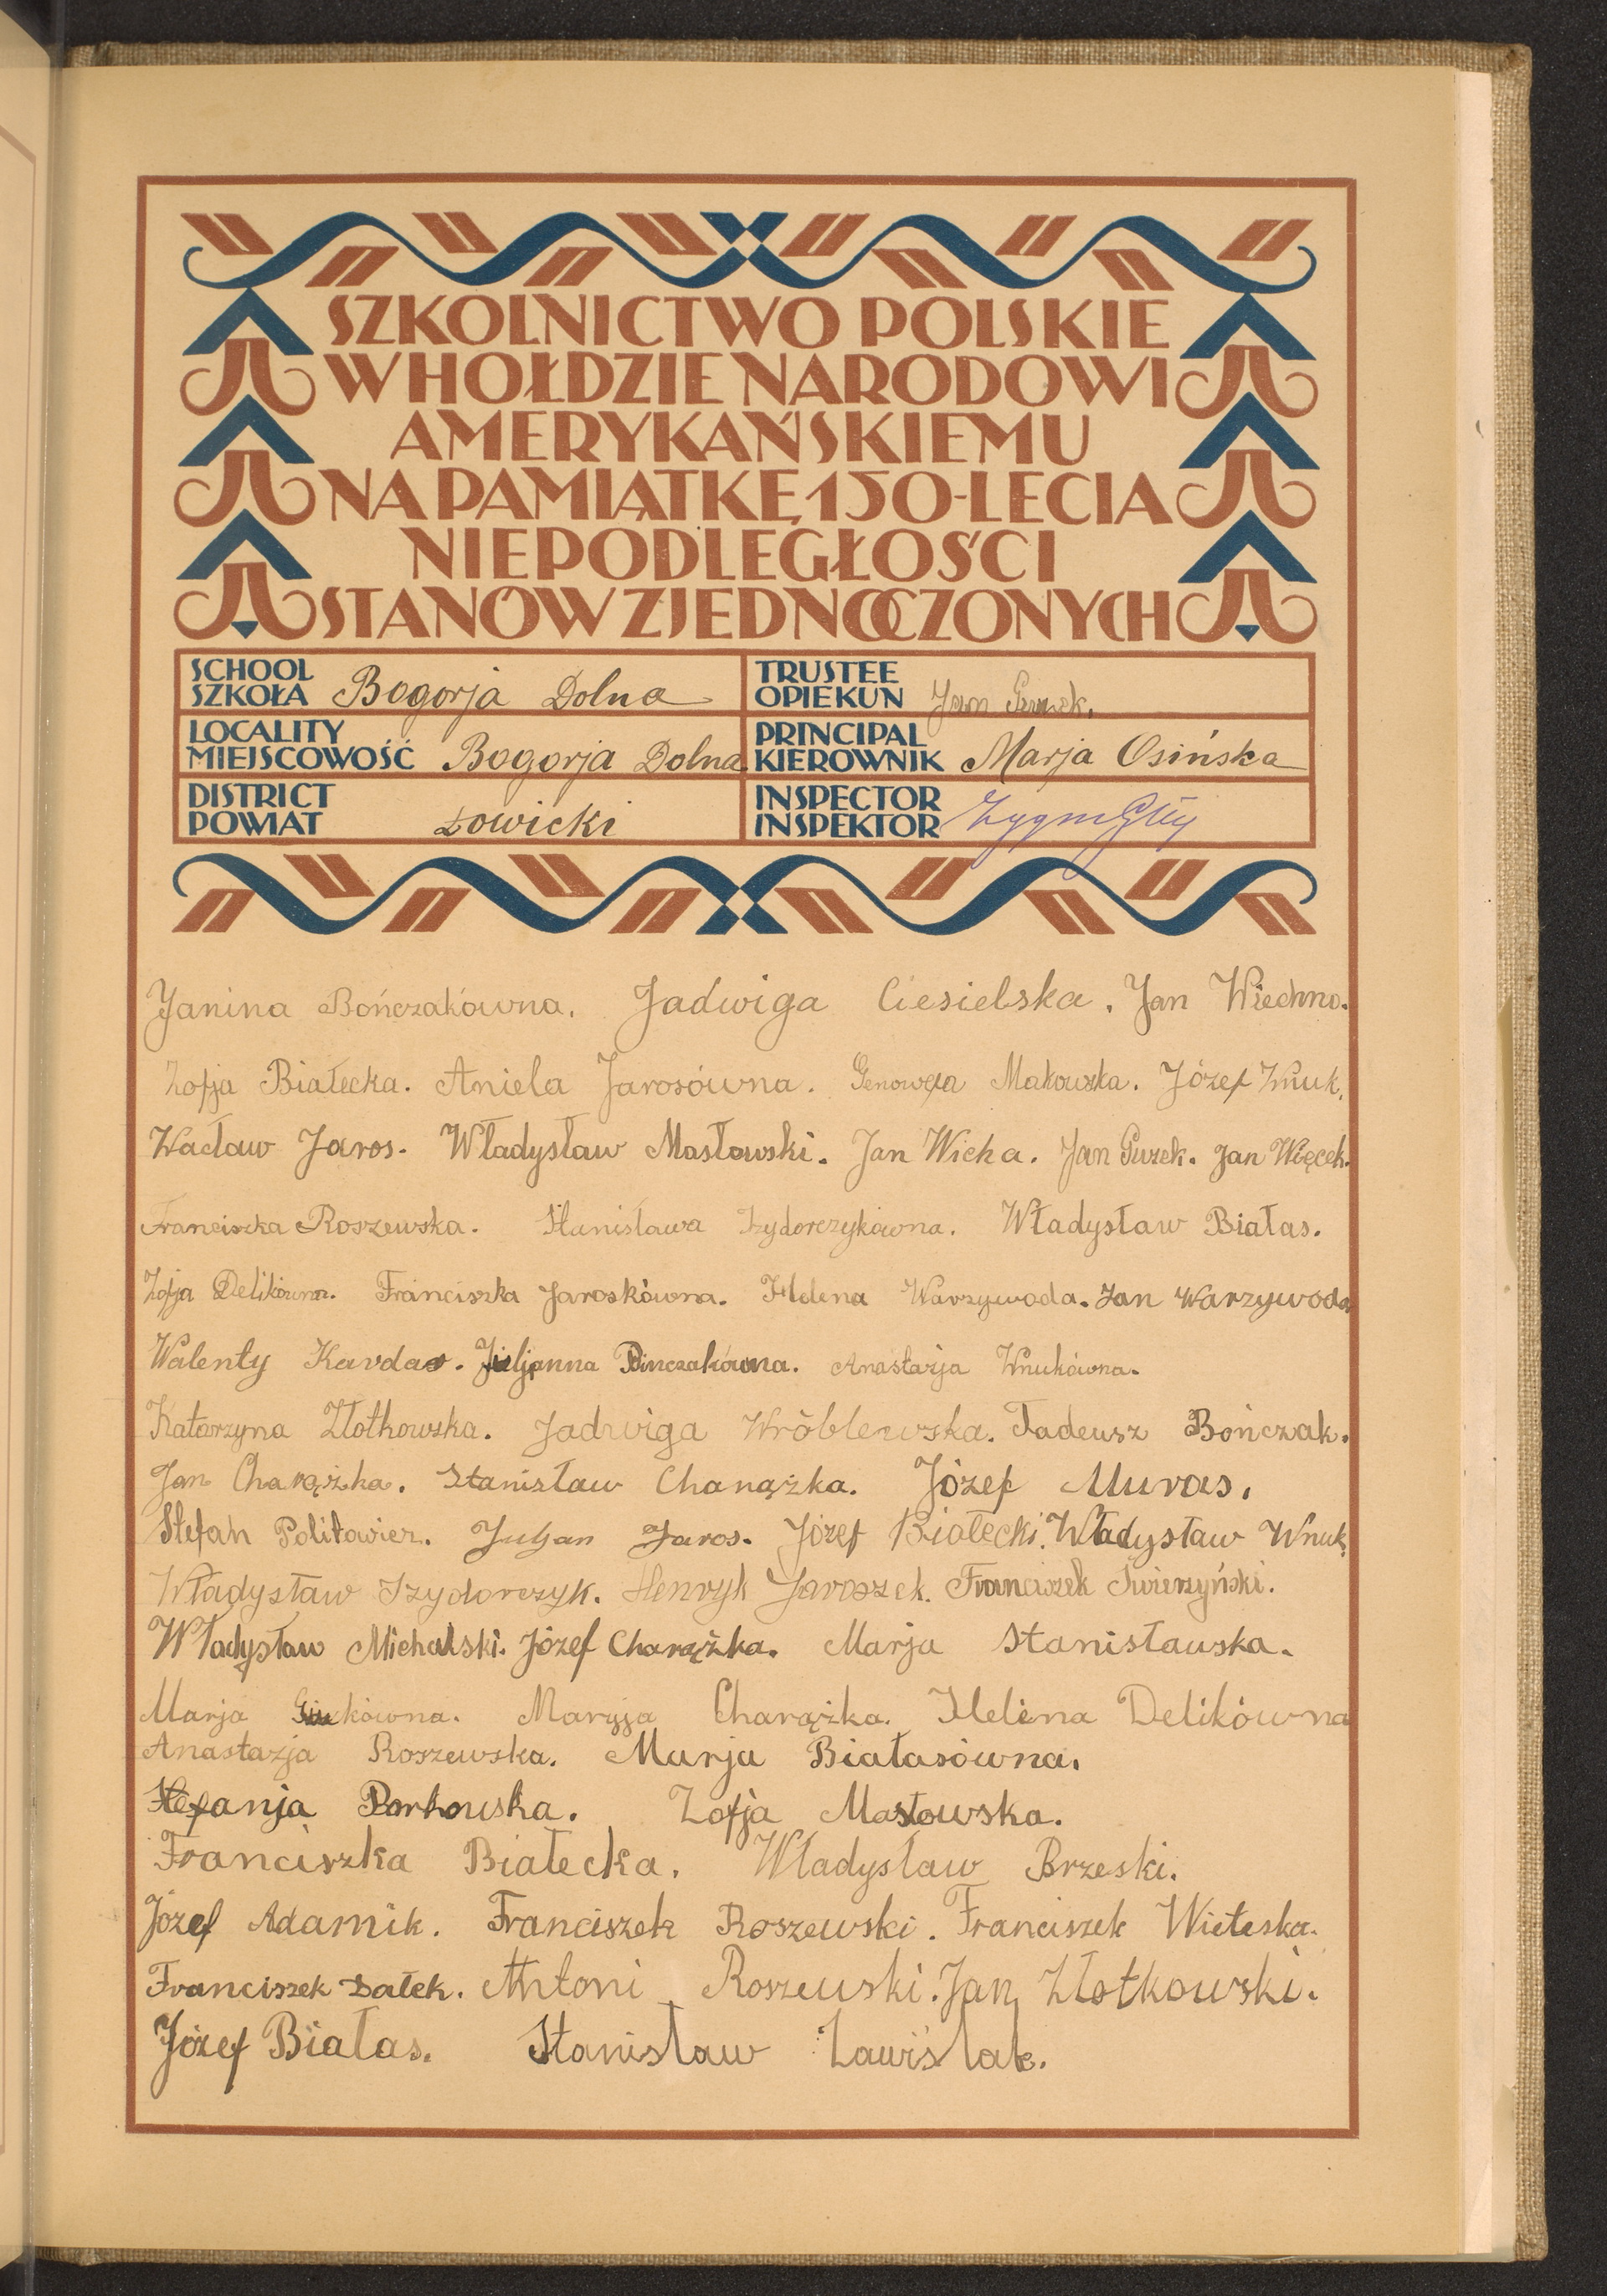 SZKOLNICTWO POLSKIE
W HOŁDZIE NARODOWI
AMERYKAŃSKIEMU
NA PAMIĄTKĘ 150-LECIA
NIEPODLEGŁOŚCI
STANÓW ZJEDNOCZONYCH
SCHOOL
SZKOŁA Bogorja Dolna
TRUSTEE
OPIEKUN Jan
LOCALITY
MIEJSCOWOŚĆ Bogorja Dolna
PRINCIPAL
KIEROWNIK Marja Osińska
DISTRICT
POWIAT Łowicki
INSPECTOR
INSPEKTOR
Janina Bończakówna. Jadwiga Ciesielska. Jan Wiechno.
Zofja Białecka. Aniela Jarosówna. Genowefa Makowska. Józef Wnuk.
Wacław Jaros. Władysław Masłowski. Jan Wicha. Jan Guzek. Jan Więcek.
Franciszka Roszewska. Stanisława Izydorczykówna. Władysław Białas.
Zofja Delikówna. Franciszka Jaroskówna. Helena Warzywoda. Jan Warzywoda
Walenty Kardas. Juljanna Bończakówna. Anastazja Wnukówna.
Katarzyna Złotkowska. Jadwiga Wróblewska. Tadeusz Bończak.
Jan Charążka. Stanisław Charążka. Józef Muras.
Stefan Politowicz. Juljan Jaros. Józef Białecki. Władysław Wnuk.
Władysław Izydorczyk. Henryk Jaroszek. Franciszek Świerzyński.
Władysław Michalski. Józef Charążka. Marja Stanisławska.
Marja Maryja Charążka. Helena Delikówna
Anastazja Roszewska. Marja Białasówna.
Stefanja Borkowska. Zofja Masłowska.
Franciszka Białecka. Władysław Brzeski.
Józef Adamik. Franciszek Roszewski. Franciszek Wieteska.
Franciszek Dałek. Antoni Roszewski. Jan Złotkowski.
Józef Białas. Stanisław Zawiślak.